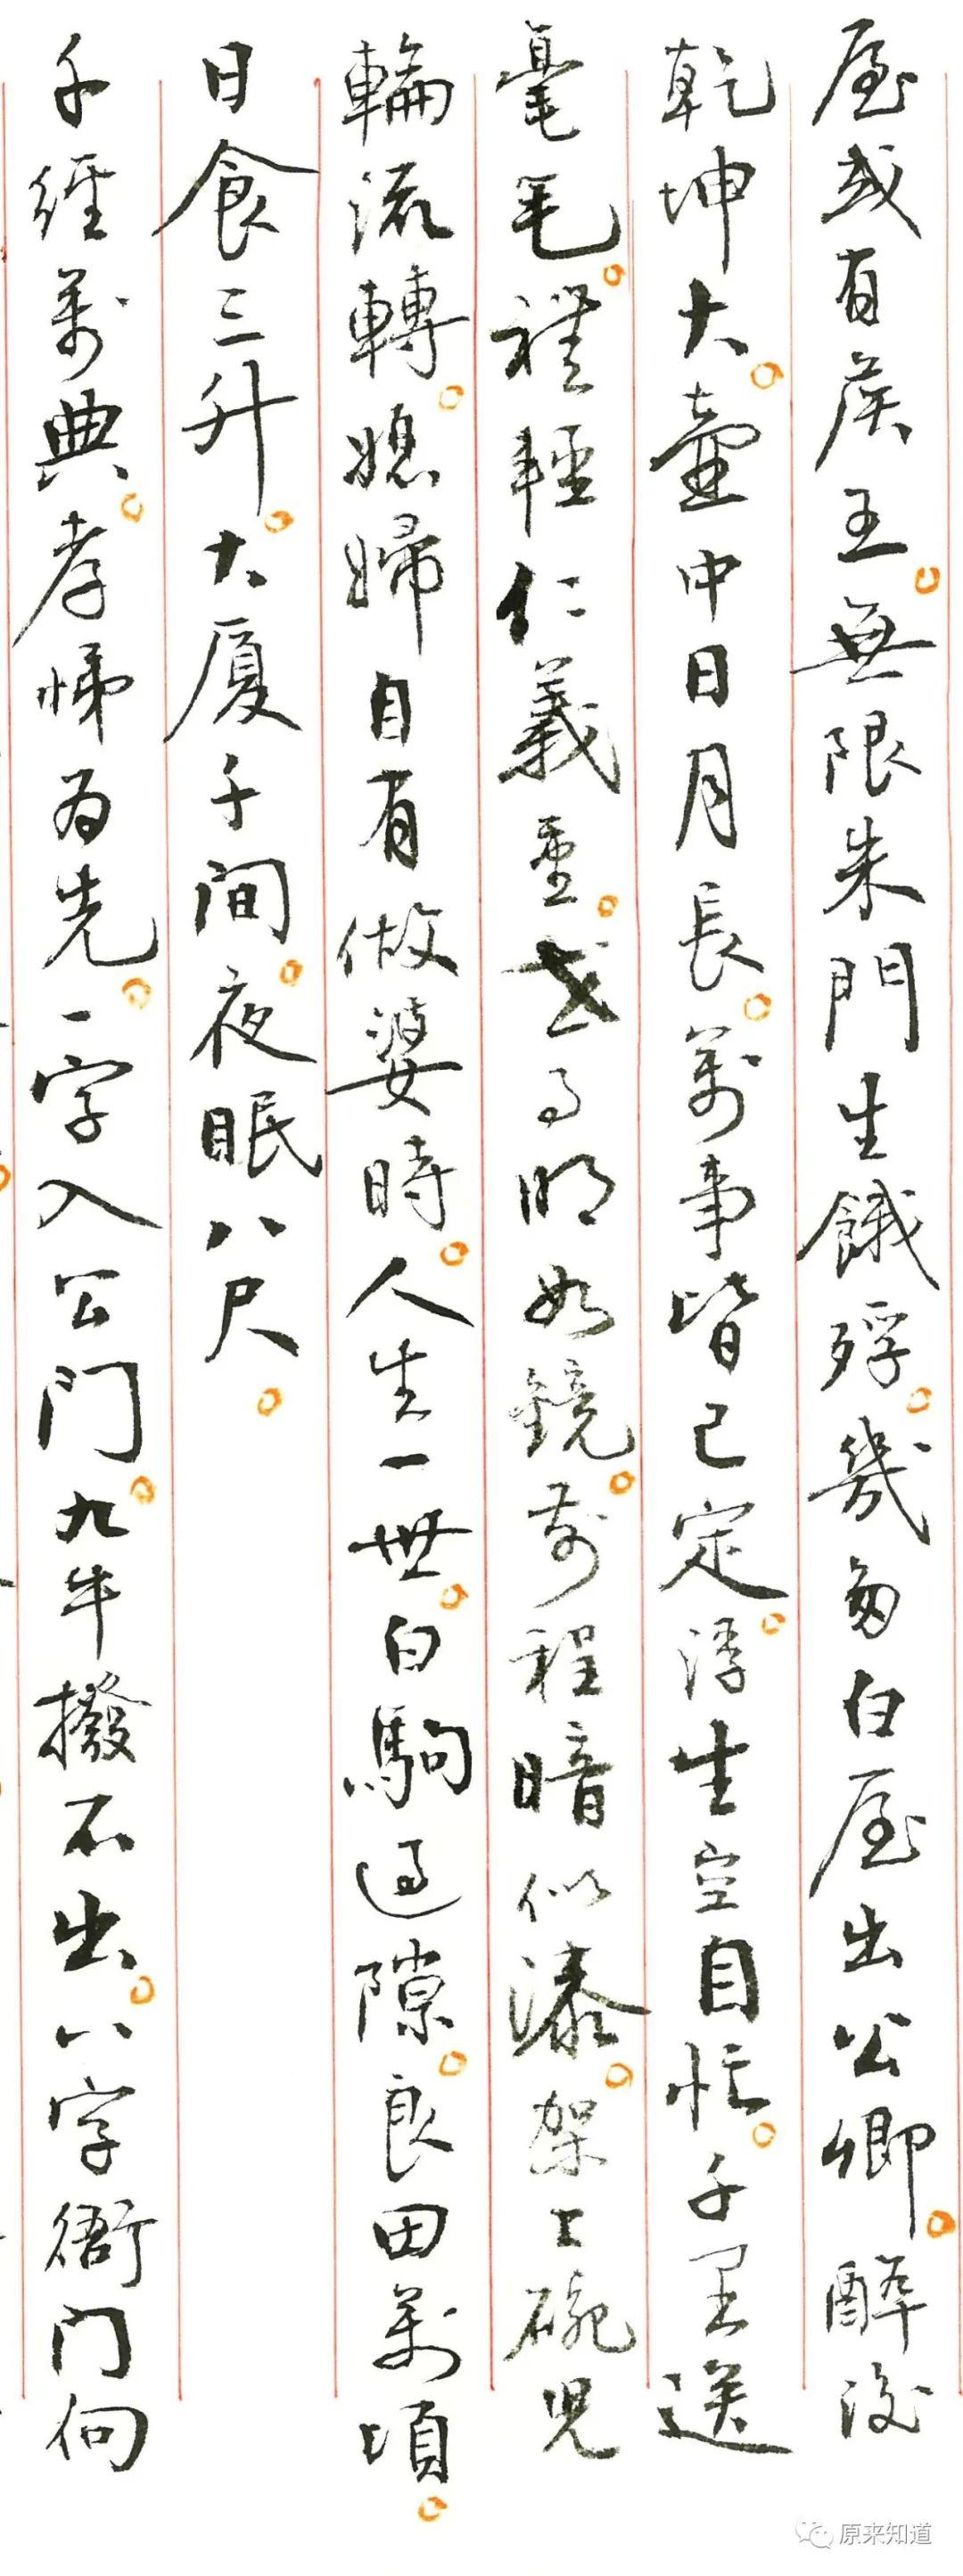 屋或有侯王。無限朱門生餓殍。幾多白屋出公卿。醉後
乾坤大。壷中日月長。萬事皆已定。浮生空自忙。千里送
毫毛。禮輕仁義重。世事明如鏡。前程暗似漆。架上碗兒
輪流轉。媳婦自有做婆時。人生一世。白駒過隙。良田萬頃。
日食三升。大廈千間。夜眠八尺。
千經萬典。孝悌為先。一字入公门。九牛撥不出。八字衙门向
原来知道